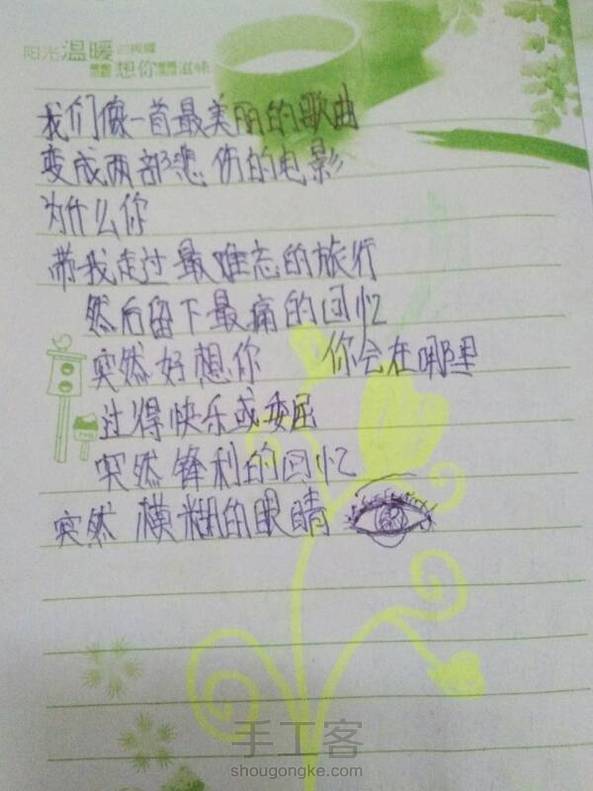 阳光温暖
想你 滋味
我们像一首最美丽的歌曲
变成两部悲伤的电影
为什么你
带我走过最难忘的旅行
然后留下最痛的回忆
突然好想你 你会在哪里
过得快乐或委屈
突然锋利的回忆
突然模糊的眼睛
手工客
shougongke.com